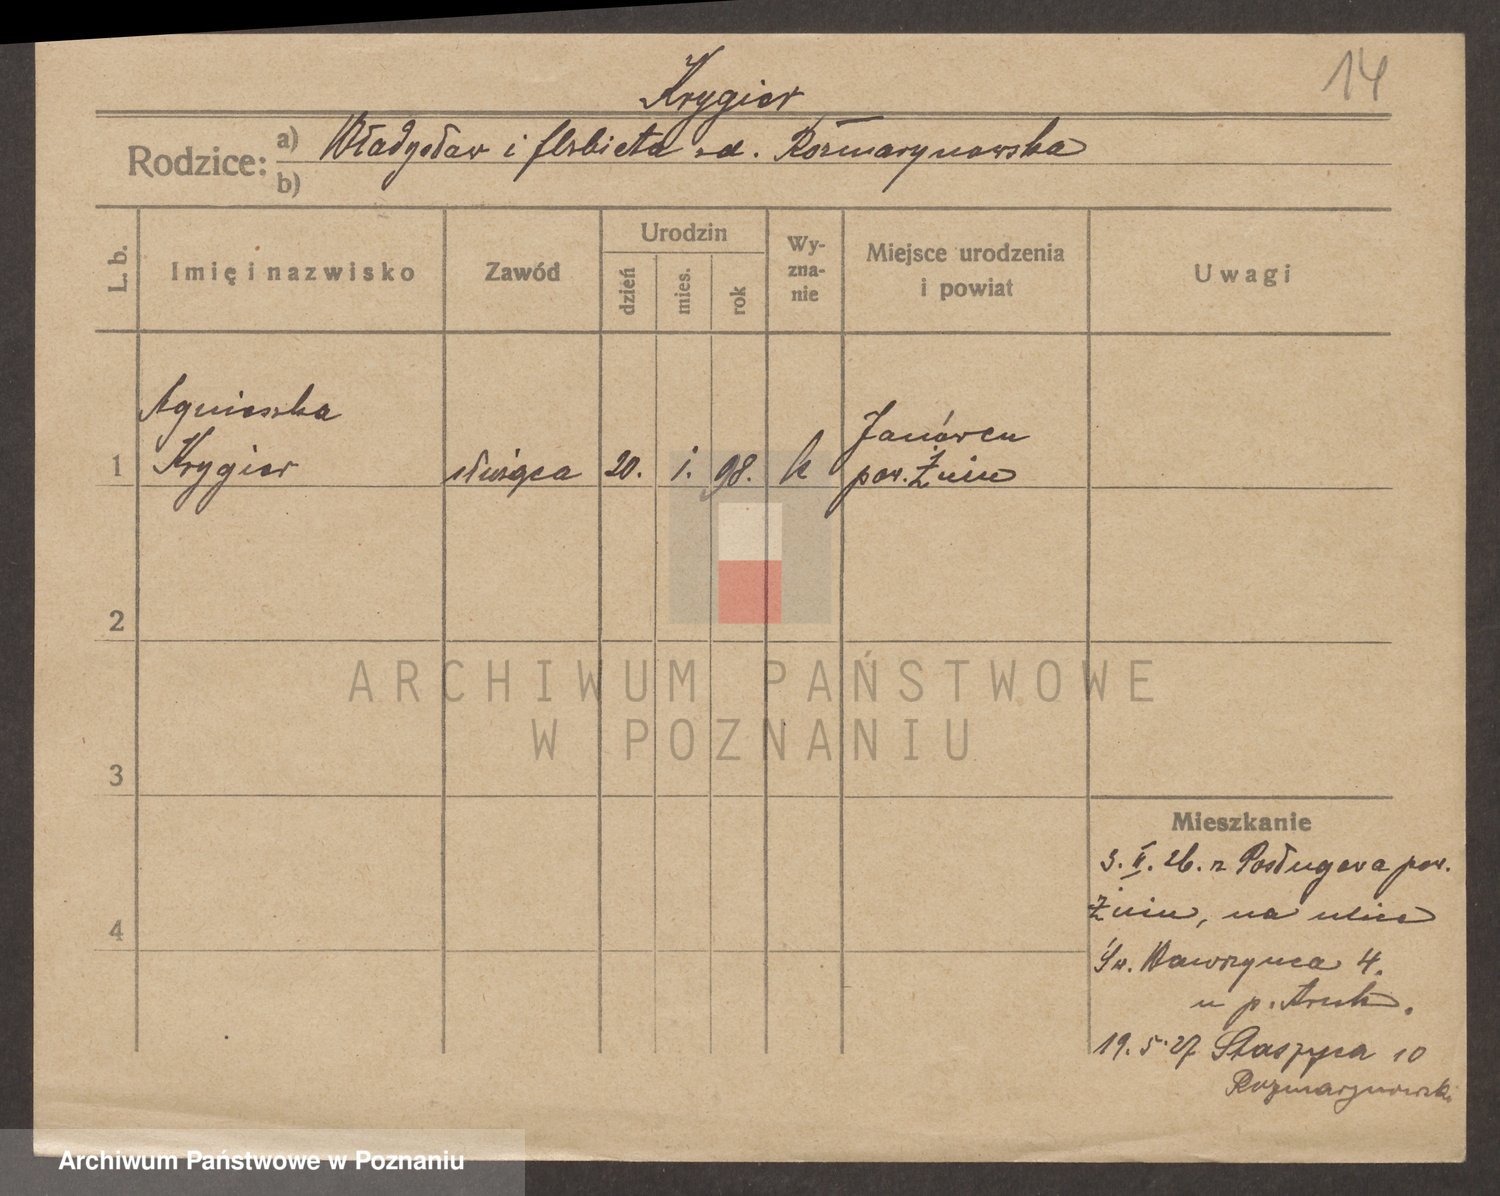 14
Krygier
Rodzice:
a) Władysław i Elżbieta zd. Rozmarynowska
b)
L. b.
Imię i nazwisko
Zawód
Urodzin
dzień
mies.
rok
Wy-
zna-
nie
Miejsce urodzenia
i powiat
Uwagi
Agnieszka
Janówcu
1 Krygier służąca 20. i. 98. k pow. Żnin
2
3
4
ARCHIWUM PAŃSTWOWE
W POZNANIU
Mieszkanie
3. II. 26. z Posługowa pow.
Żnin, na ulicę
Św. Wawrzyńca 4.
u p.
19. 5. 27 Staszyca 10
Rozmarynowski
Archiwum Państwowe w Poznaniu